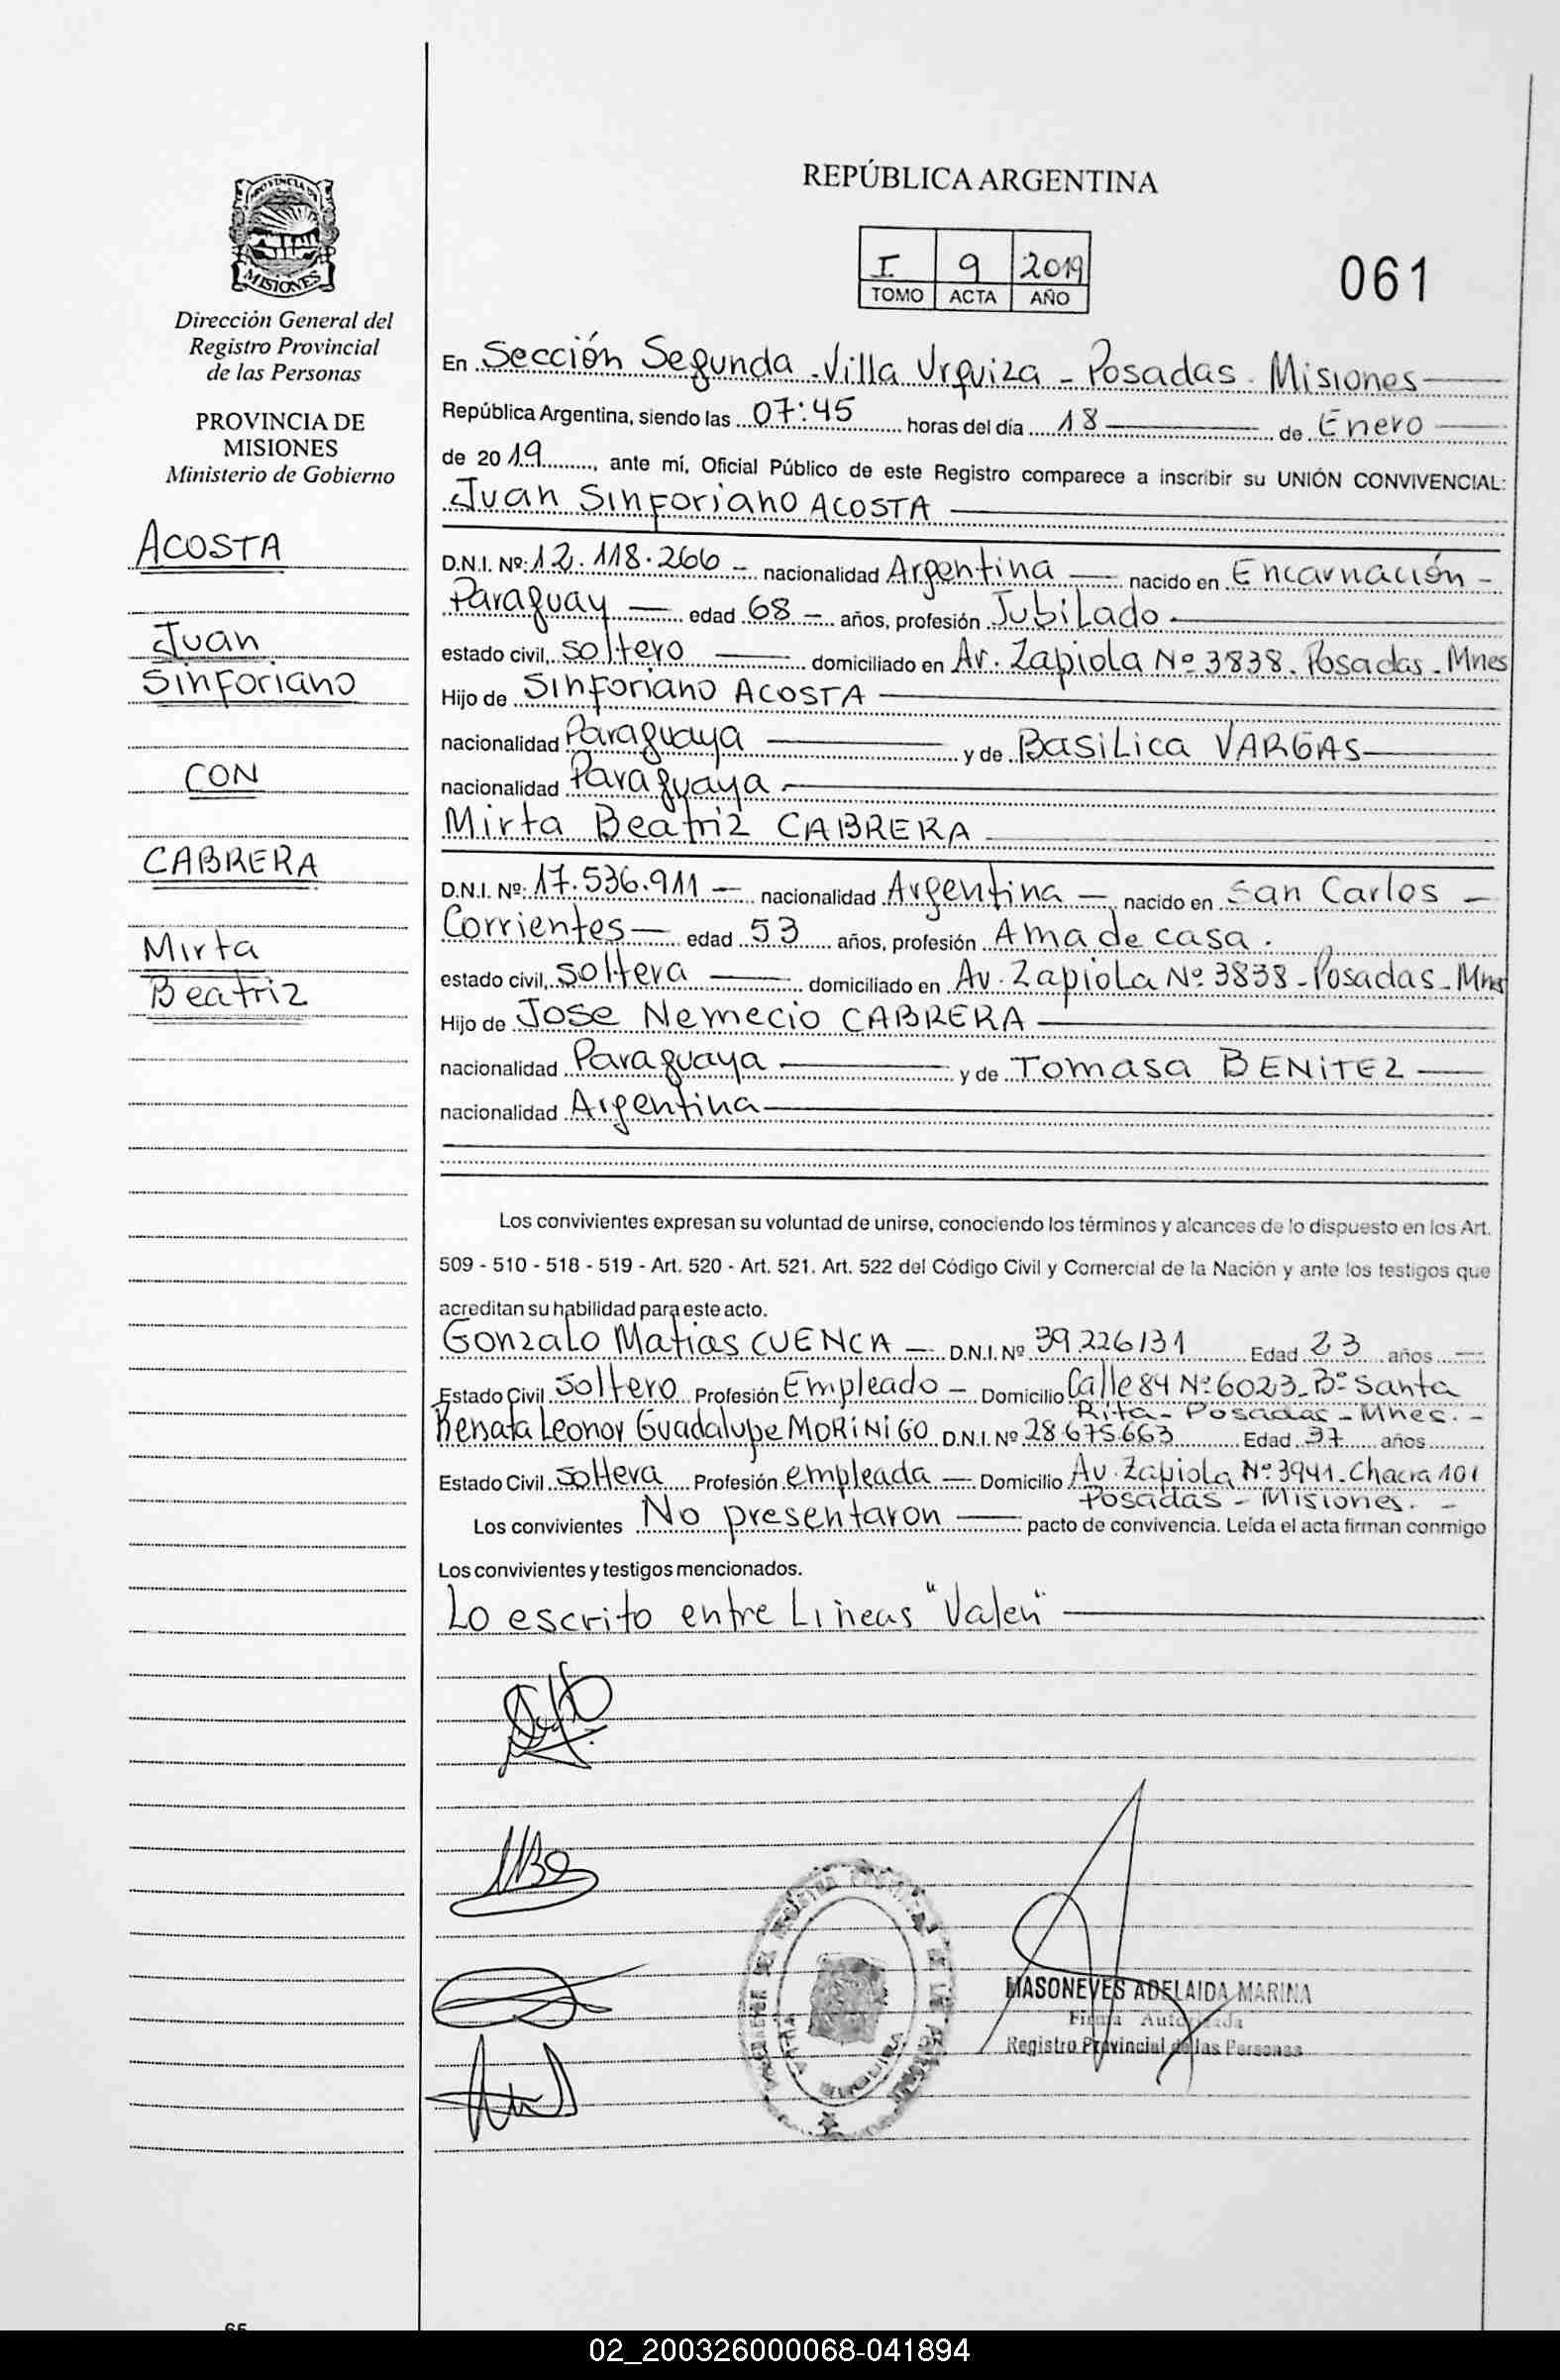 PROVINCIA DE
MISIONES
Dirección General del
Registro Provincial
de las Personas
PROVINCIA DE
MISIONES
Ministerio de Gobierno
ACOSTA
Juan
Sinforiano
CON
CABRERA
Mirta
Beatriz
REPÚBLICA ARGENTINA
I 9 2019
TOMO ACTA AÑO
061
En Sección Segunda - Villa Urquiza - Posadas - Misiones
República Argentina, siendo las 07:45 horas del día 18 de Enero
de 2019, ante mí, Oficial Público de este Registro comparece a inscribir su UNIÓN CONVIVENCIAL:
Juan Sinforiano ACOSTA
D.N.I. Nº: 12.118.266 - nacionalidad Argentina nacido en Encarnación -
Paraguay edad 68 - años, profesión Jubilado
estado civil, soltero domiciliado en Av. Zapiola Nº 3838 - Posadas - Mnes
Hijo de Sinforiano ACOSTA
nacionalidad Paraguaya y de Basilica VARGAS
nacionalidad Paraguaya
Mirta Beatriz CABRERA
D.N.I. Nº: 17.536.911 - nacionalidad Argentina - nacido en San Carlos -
Corrientes - edad 53 años, profesión Ama de casa.
estado civil, soltera domiciliado en Av. Zapiola Nº 3838 - Posadas - Mnes
Hijo de Jose Nemecio CABRERA
nacionalidad Paraguaya y de Tomasa BENITEZ
nacionalidad Argentina
Los convivientes expresan su voluntad de unirse, conociendo los términos y alcances de lo dispuesto en los Art.
509 - 510 - 518 - 519 - Art. 520 - Art. 521. Art. 522 del Código Civil y Comercial de la Nación y ante los testigos que
acreditan su habilidad para este acto.
Gonzalo Matias CUENCA - D.N.I. Nº 39.226131 Edad 23 años
Estado Civil Soltero Profesión Empleado - Domicilio Calle 84 Nº 6023 - Bº Santa
Rita - Posadas - Mnes. -
Renata Leonor Guadalupe MORINIGO D.N.I. Nº 28.675.663 Edad 37 años
Estado Civil Soltera Profesión empleada - Domicilio Av. Zapiola Nº 3941 - Chacra 101
Posadas - Misiones. -
Los convivientes No presentaron pacto de convivencia. Leída el acta firman conmigo
Los convivientes y testigos mencionados.
Lo escrito entre Lineas "Valen"
MASONEVES ADELAIDA MARINA
Firma Autorizada
Registro Provincial de las Personas
02_200326000068-041894